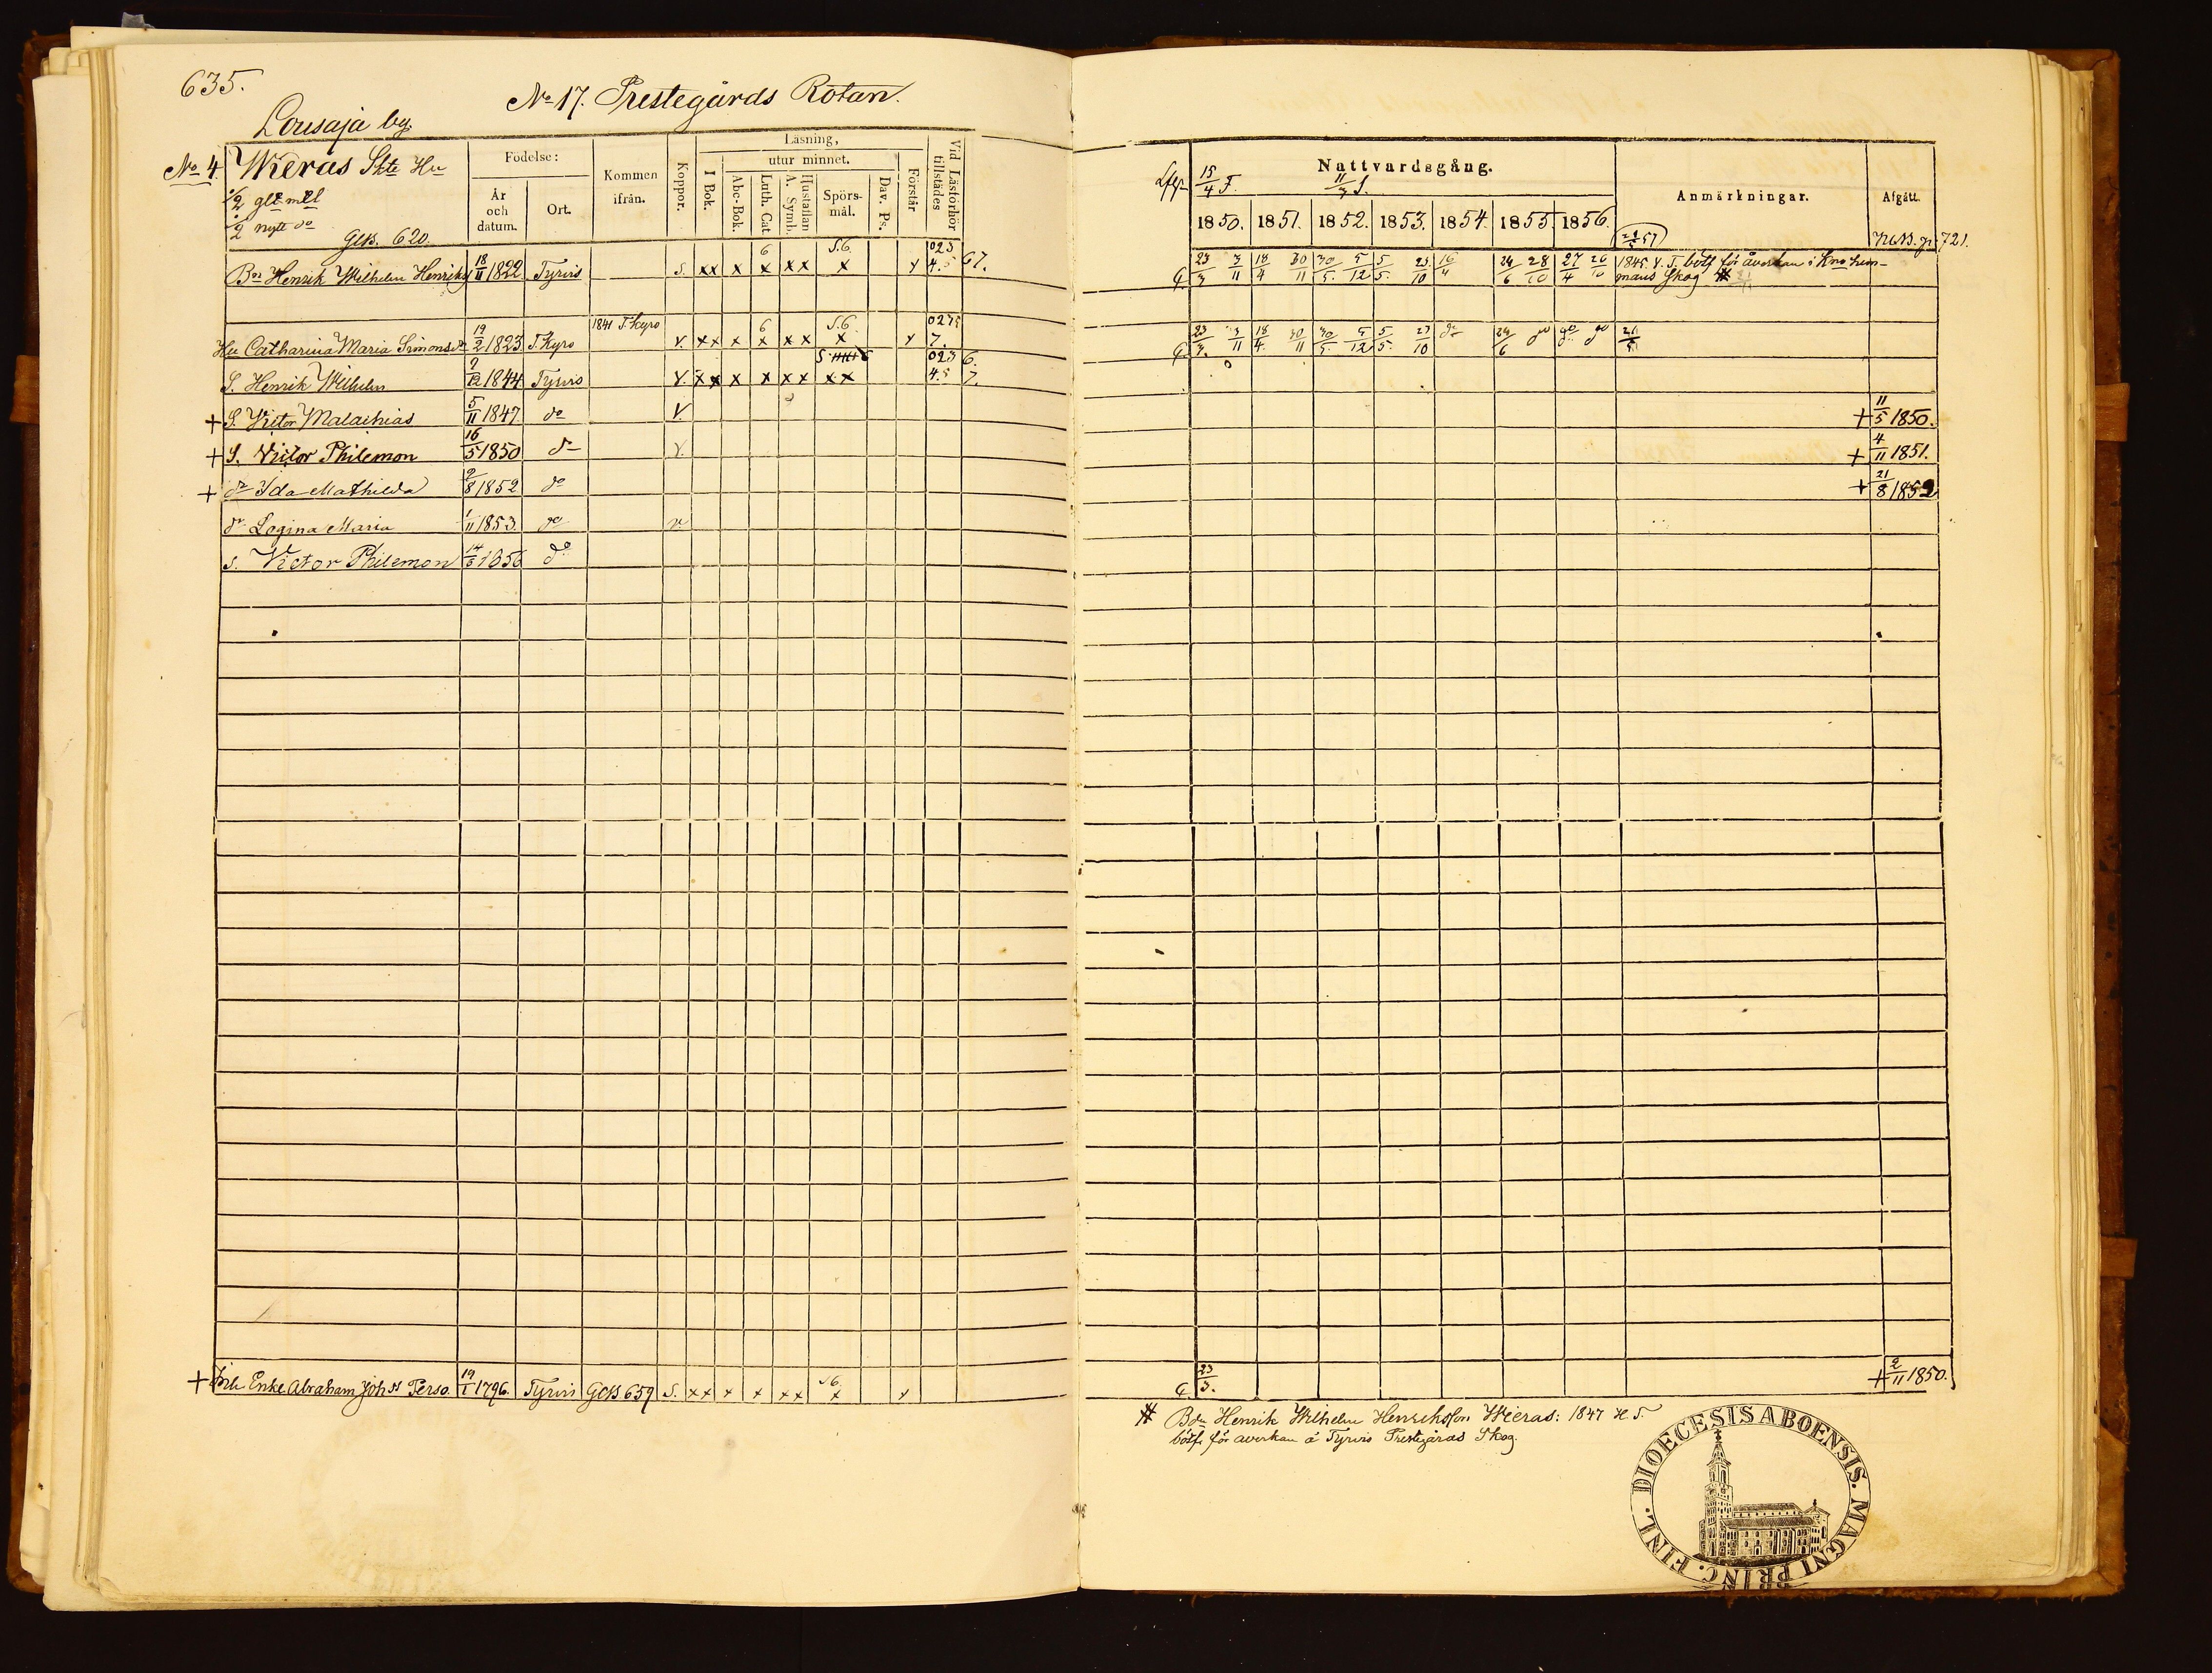 635.
No 17. Prestegårds Rotan.
Lousaja by.
No 4. Wieras Skte Hu
1/2 gle mtl
1/2 nytt do
GCB. 620.
Födelse:
År och datum.
Ort.
Kommen ifrån.
Koppor.
Läsning,
I Bok.
utur minnet.
Abc-Bok.
Luth. Cat.
Hustaflan A. Symb.
Spörs-mål.
Dav. Ps.
Förstår
Vid Läsförhör tillstädes
6 S.6. 023
Bn Henrik Wilhelm Henriks 18/11 1822. Tyrvis S. xx x x xx x Y 4.5 67.
1841 T. Kyro 6 S.6. 0275
Hu Catharina Maria Simonsdr 19/2 1823. T. Kyro V. xx x x xx x Y 7.
023 6.
S. Henrik Wilhelm 9/12 1844 Tyrvis V. xx x x xx xx 4.5 7
+ S. Victor Malachias 5/11 1847. do V.
+ S. Victor Philemon 16/5 1850 do V.
+ dr Ida Mathilda 2/8 1852 do
dr Logina Maria 1/11 1853. do v.
s. Victor Philemon 14/3 1856 do
+ Inh Enke Abraham Joh. St Perso. 19/1 1796. Tyrvis GCB 659 S. xx x x xx x Y
15/4 F.
Nattvardsgång.
11/7 S.
Anmärkningar.
Afgått.
1850. 1851. 1852. 1853. 1854. 1855 1856.
NCB. p. 721.
23/3 3/11 18/4 30/11 30/5. 5/12 5/5. 23/10 16/4 24/6 28/10 27/4 26/10 1845. V. T. bötf för åverkan i
mans Skog #
23/3. 3/11 18/4. 30/11 30/5. 5/12 5/5. 23/10 do 24/6 do do do 21/5
+ 11/5 1850.
+ 4/11 1851.
+ 21/8 1852
23/3. + 2/11 1850.
# Bdn Henrik Wilhelm Henriksson Wieras: 1847 H T.
bötf. för averkan å Tyrvis Prestegårds Skog.
DIOECESIS ABOENSIS. MAGNI PRINC. FINL.